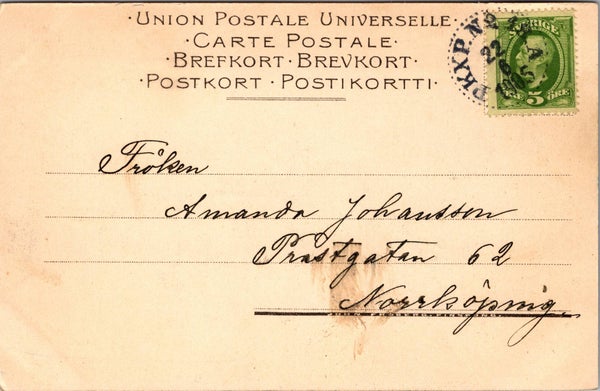 ·UNION POSTALE UNIVERSELLE·
·CARTE POSTALE·
·BREFKORT·BREVKORT·
·POSTKORT·POSTIKORTTI·
SVERIGE
5 ÖRE
PKXP. Nº
22
Fröken
Amanda Johansson
Prästgatan 62
Norrköping.